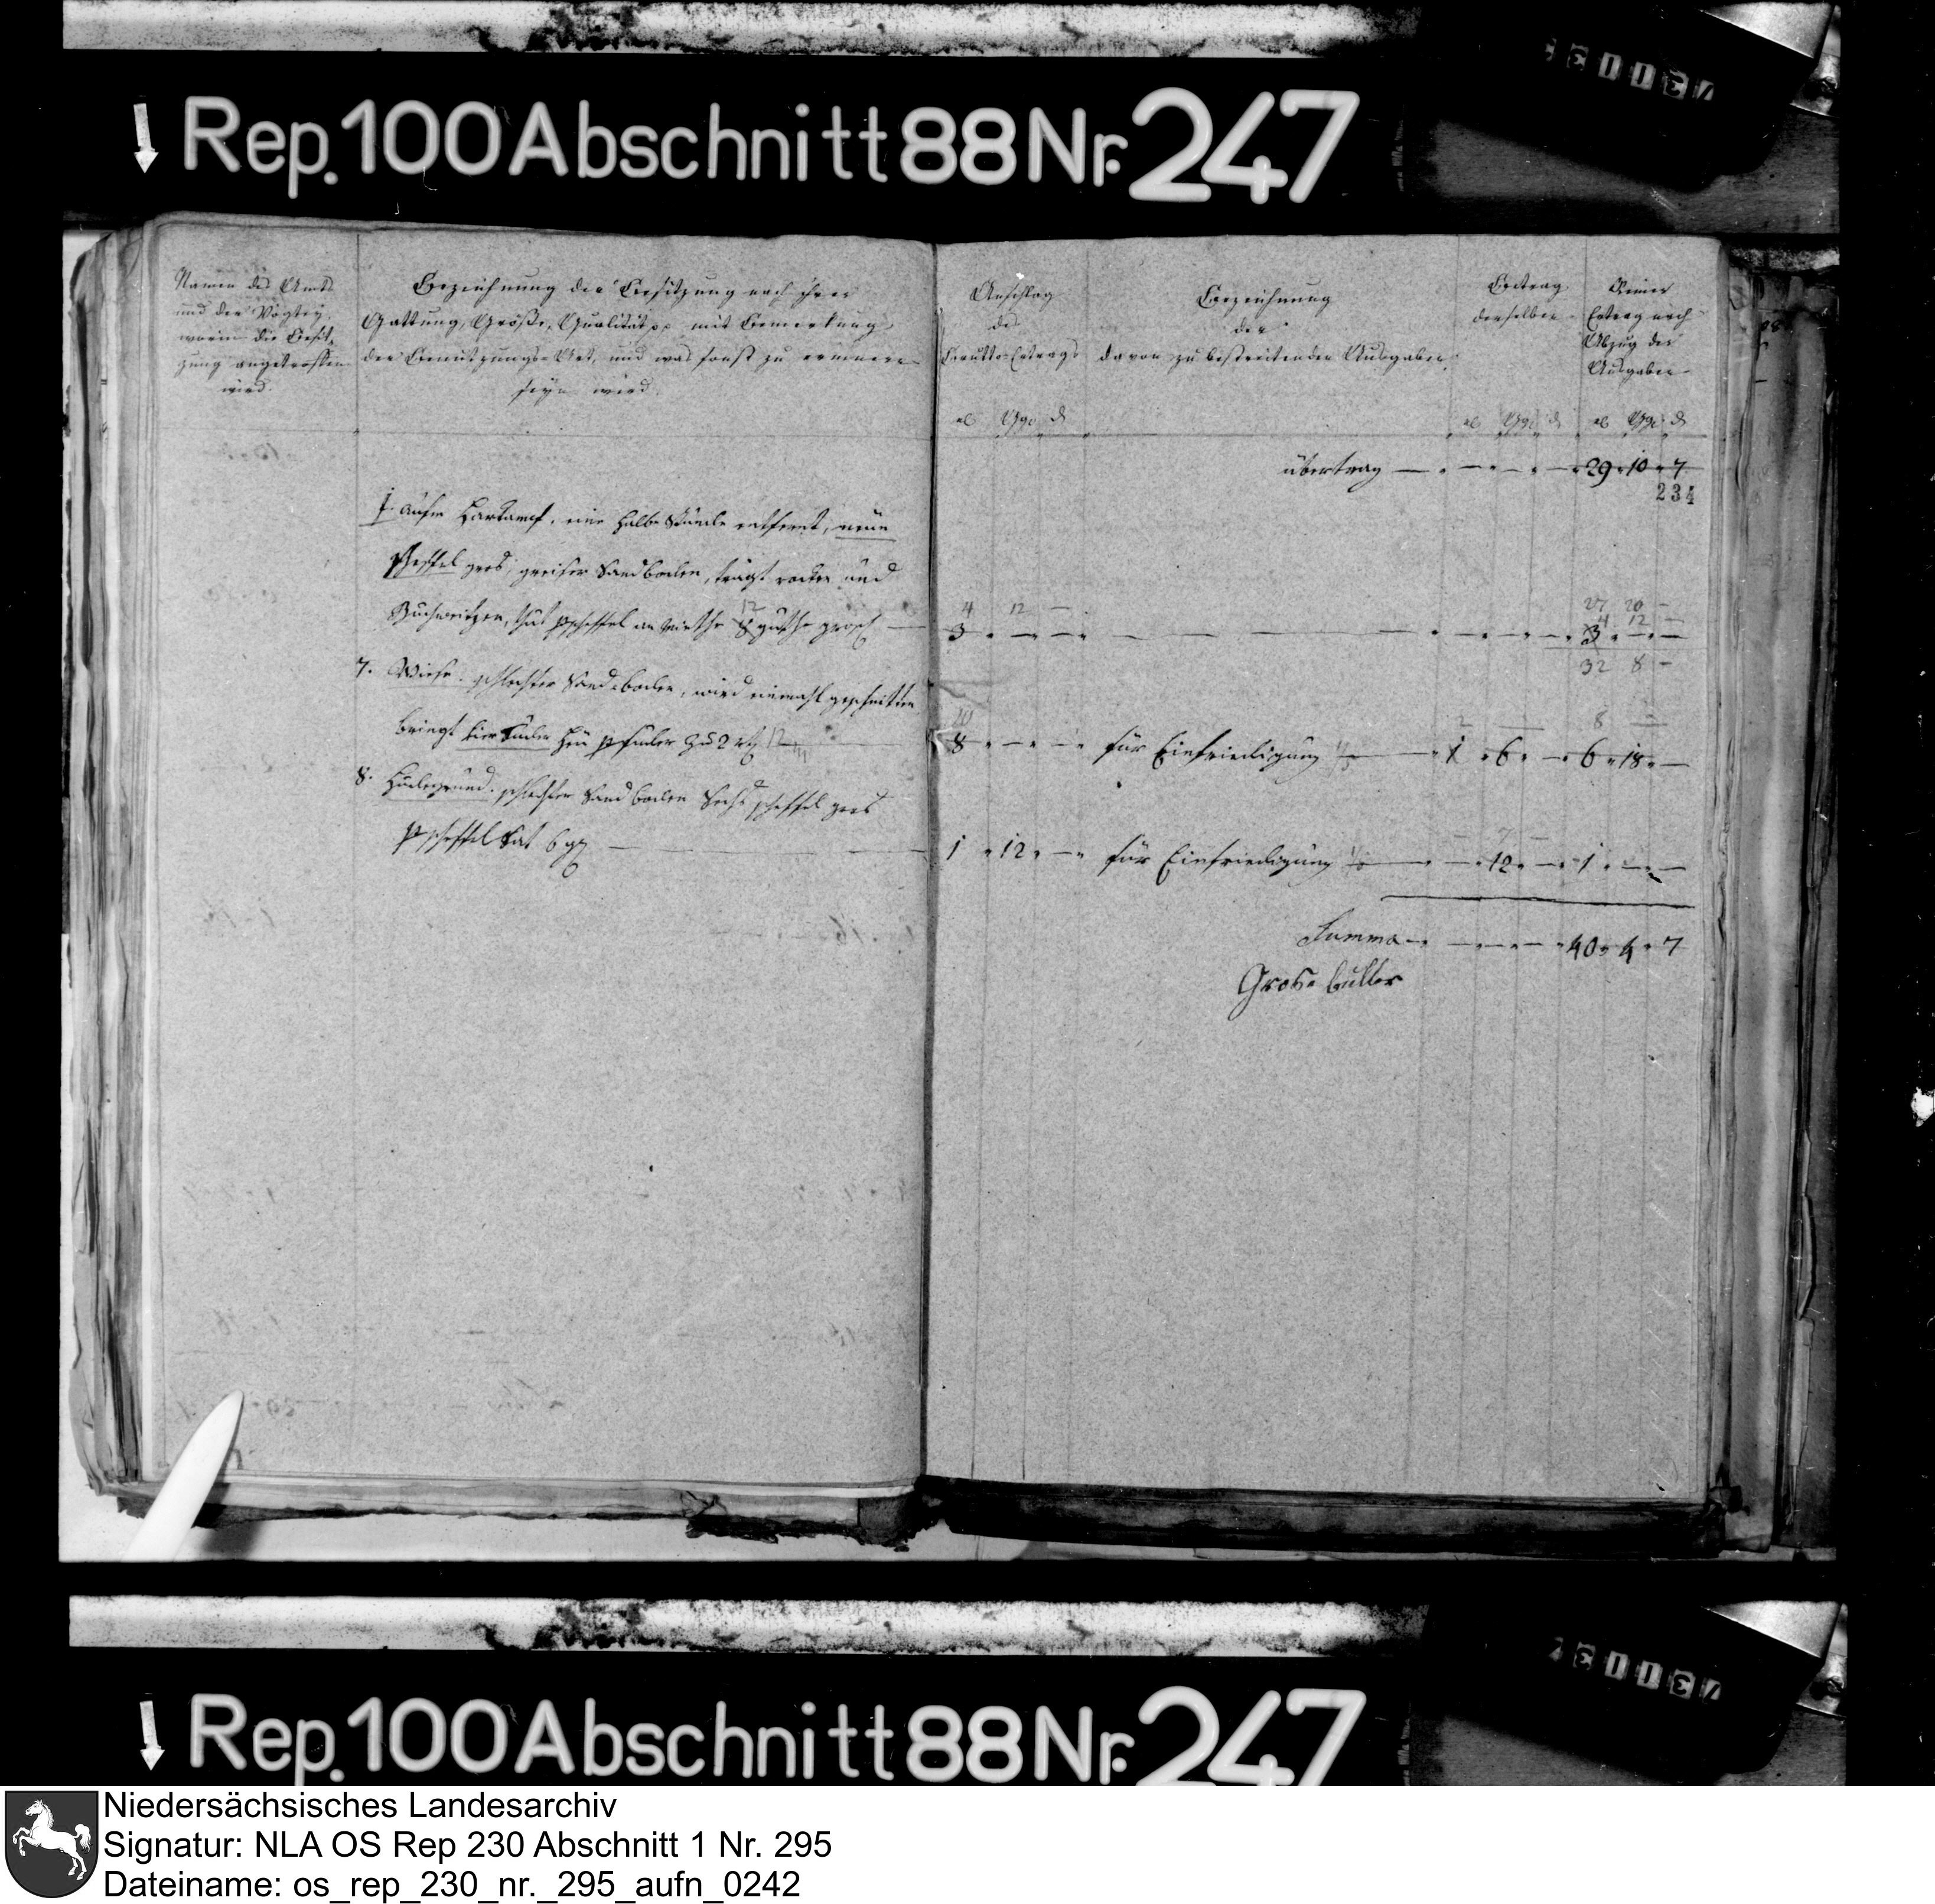 Rep. 100 Abschnitt 88 Nr. 247
Namen des Amts
und der Vogtey,
worin die Besit-
zung angetroffen
wird.
Bezeichnung der Besitzung nach ihrer
Gattung, Größe, Qualität pp mit Bemerkung
der Benutzungs-Art, und was sonst zu erinnern
seyn wird.
Anschlag
des
Brutto-Ertrags
Bezeichnung
der
davon zu bestreitenden Ausgaben.
Betrag
derselben
Reiner
Ertrag nach
Abzug der
Ausgaben
Ggr d
Ggr d
Ggr d
übertrag — 29 10 7
234
f. aufm Harkamp, eine halbe Stunde entfernt, neun
Scheffel groß, greiser Sandboden, trägt rocken und
12
4 12 —
27 20 —
4 12 —
Buchweitzen, thut p scheffel an Miethe 8 guthe grosch — 3 — — 3 — —
32 8 —
7. Wiese. schlechter Sandboden, wird einmahl geschnitten
20
2 — 8 —
bringt vier Fuder Heu p fuder zu 2 rt 8 — — für Einfriedigung 1 6 — 6 18 —
8. Hudegrund. schlechter Sandboden Sechs scheffel groß
p scheffel Sat 6 ggr — 1 12 — für Einfriedigung — 12 — 1 — —
Summa — 40 4 7
Grose
Rep. 100 Abschnitt 88 Nr. 247
Niedersächsisches Landesarchiv
Signatur: NLA OS Rep 230 Abschnitt 1 Nr. 295
Dateiname: os_rep_230_nr._295_aufn_0242